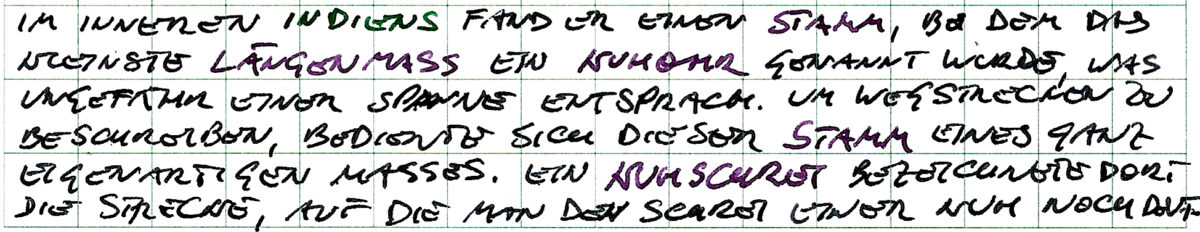 IM INNEREN INDIENS FAND ER EINEN STAMM, BEI DEM DAS
KLEINSTE LÄNGENMASS EIN KUHOHR GENANNT WURDE, WAS
UNGEFÄHR EINER SPANNE ENTSPRACH. UM WEGSTRECKEN ZU
BESCHREIBEN, BEDIENTE SICH DIESER STAMM EINES GANZ
EIGENARTIGEN MASSES. EIN KUHSCHREI BEZEICHNETE DORT
DIE STRECKE, AUF DIE MAN DEN SCHREI EINER KUH NOCH DEUT-